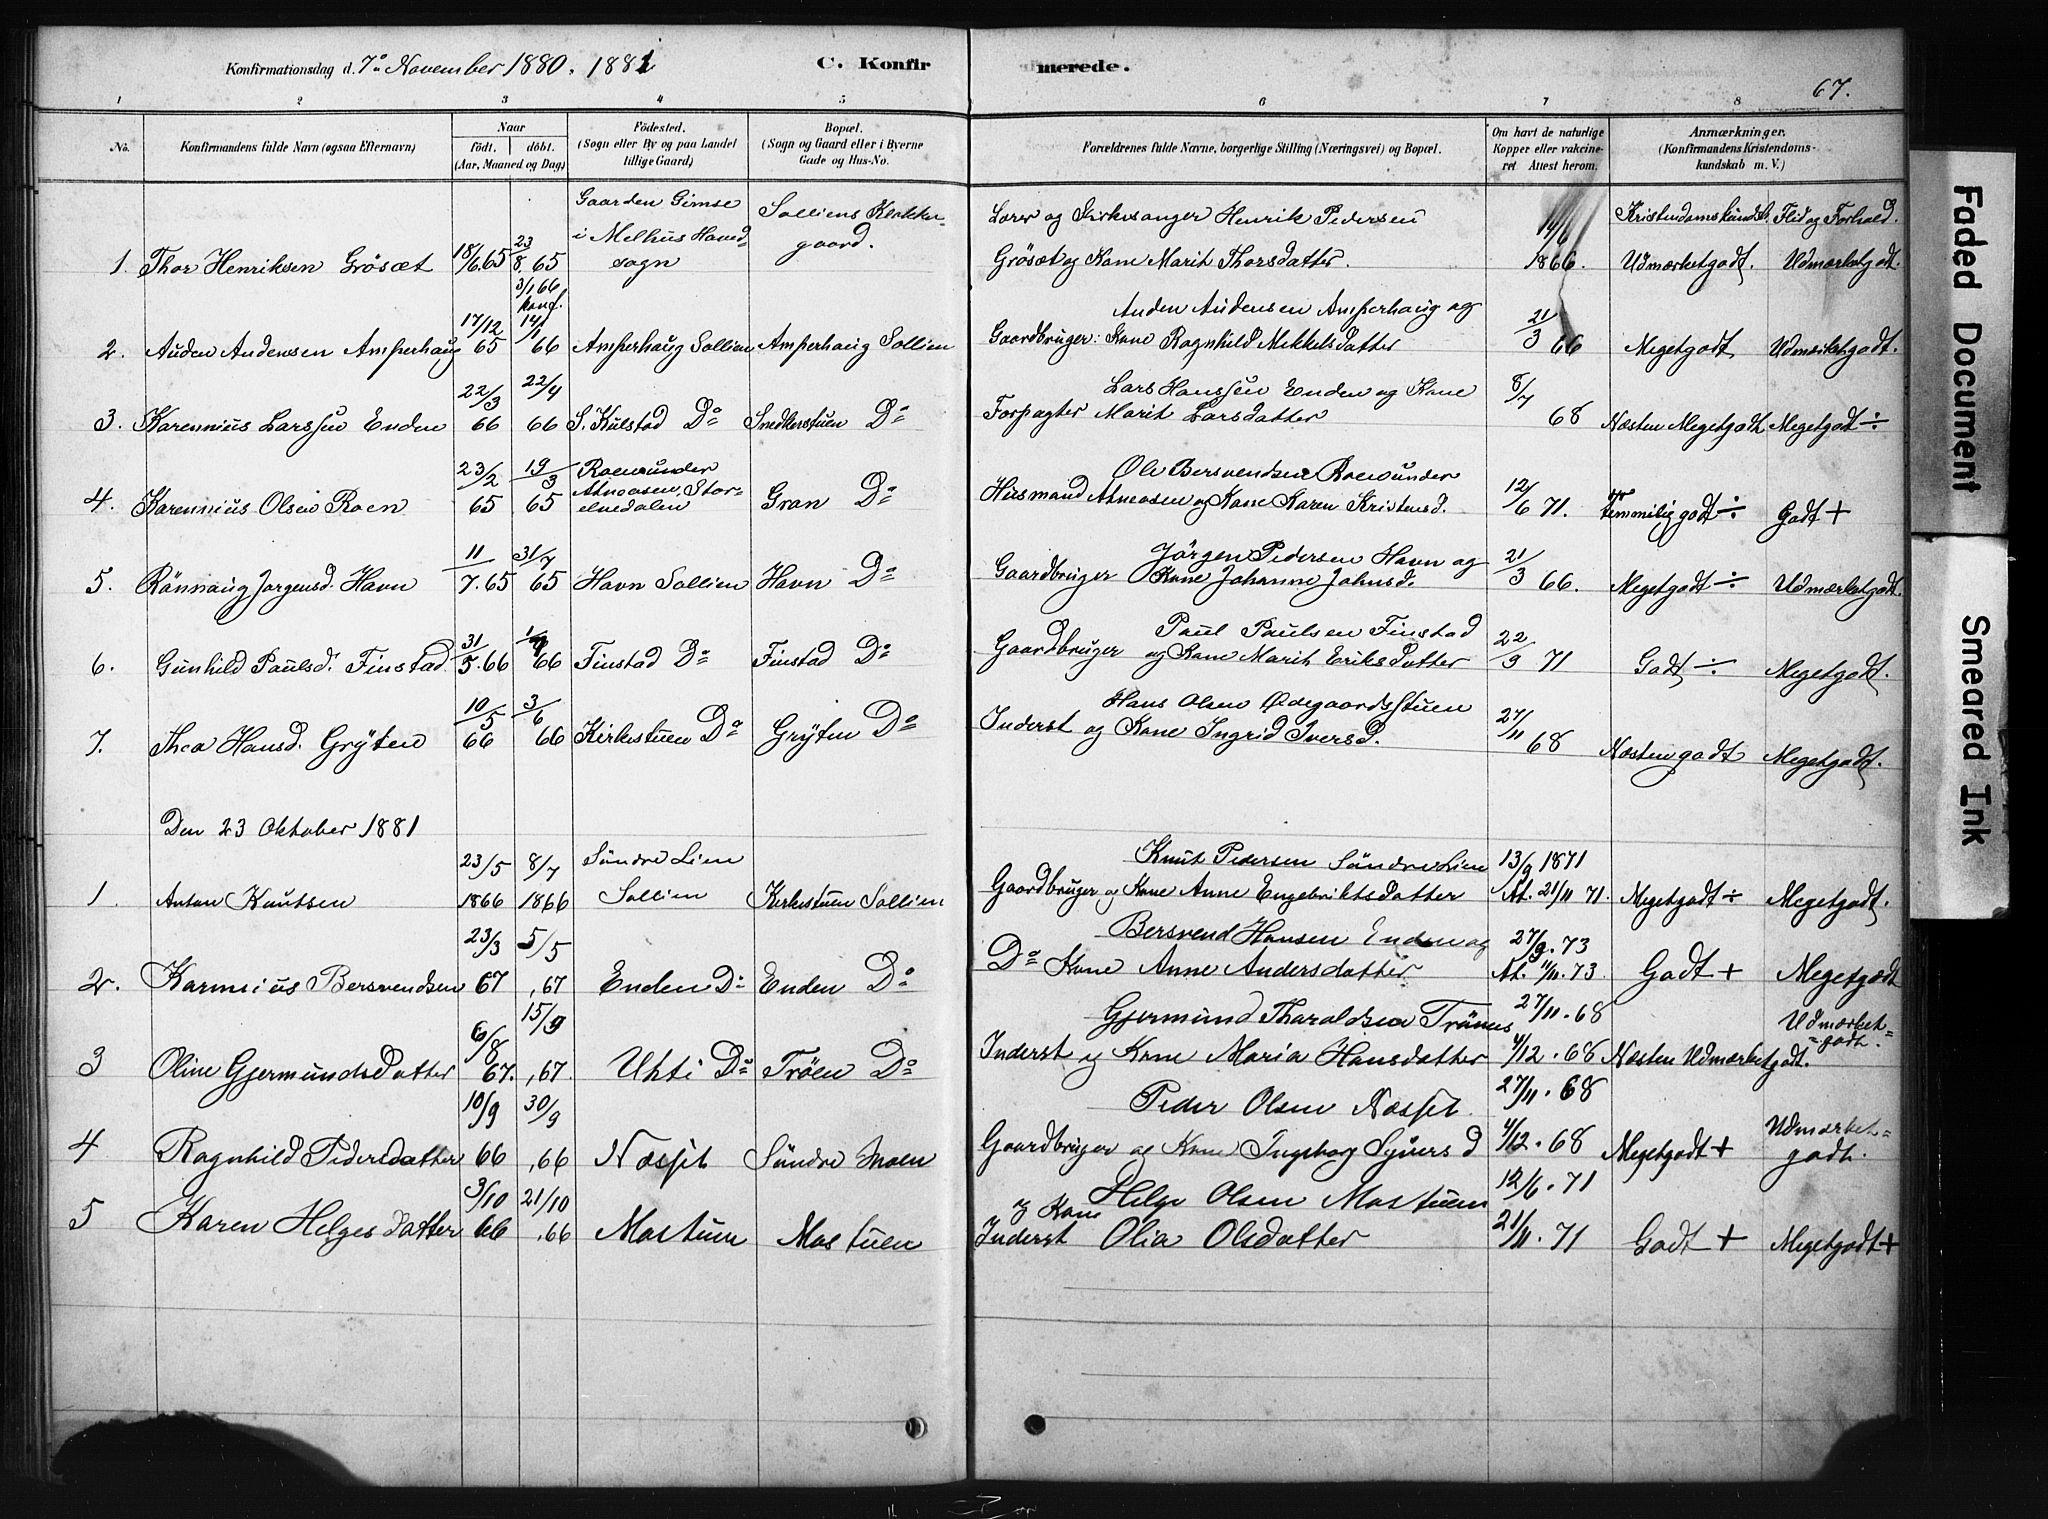 Konfirmationsdag d. 7de November 1880. 1881
C. Konfirmerede.
67.
1 2 3 4 5 6 7 8
No. Konfirmandens fulde Navn (ogsaa Efternavn) Naar födt. döbt. (Aar, Maaned og Dag) Födested. (Sogn eller By og paa Landet tillige Gaard) Bopæl. (Sogn og Gaard eller i Byerne Gade og Hus-No. Forældrenes fulde Navne, borgerlige Stilling (Næringsvei) og Bopæl. Om havt de naturlige Kopper eller vakcineret Attest herom. Anmærkninger. (Konfirmandens Kristendomskundskab m. V.)
Kristendomskundsk. Flid og Forhold.
1. Thor Henriksen Grösæt 18/6.65 23/8.65 3/1 66 konf. Gaarden Gimse i Melhus Hovedsogn Solliens Klokkergaard. Lærer og Kirkesanger Henrik Pedersen Grösæt og Kone Marit Thorsdatter. 14/6 1866. Udmærketgodt. Udmærketgodt.
2. Auden Audensen Amperhaug 17/12 65 14/1 66 Amperhaug Sollien Amperhaug Sollien Gaardbruger: Auden Audensen Amperhaug og Kone Ragnhild Mikkelsdatter 21/3 66 Megetgodt Udmærketgodt.
3. Karennius Larssen Enden 22/3 66 22/4 66 S. Kulstad Do Snedkerstuen Do Forpagter Lars Hanssen Enden og Kone Marit Larsdatter 8/7 68 Næsten Megetgodt Megetgodt ÷
4. Karennius Olsen Roen 23/2 65 19/3 65 Roen under Atneosen, Storelvedalen Gran Do Husmand Ole Bersvendsen Roen under Atneosen og Kone Karen Kristensd. 12/6 71. Temmelig godt ÷ Godt +
5. Rönnaug Jorgensd. Havn 11/7.65 31/7 65 Havn Sollien Havn Do Gaardbruger Jörgen Pedersen Havn og Kone Johanne Johnsd. 21/3 66. Megetgodt ÷ Udmærketgodt.
6. Gunhild Paulsd. Finstad. 31/5.66 66 Finstad Do Finstad Do Gaardbruger Paul Paulsen Finstad og Kone Marit Eriksdatter 22/9 71 Godt ÷ Megetgodt.
7. Thea Hansd. Gryten 10/5 66 3/6 66 Kirkestuen Do Gryten Do Inderst Hans Olsen Ødegaardsstuen og Kone Ingrid Iversd. 27/11 68 Næsten godt Megetgodt.
Den 23 Oktober 1881
1. Anton Knutsen 23/5 1866 8/7 1866 Söndre Lien Sollien Kirkestuen Sollien Gaardbruger Knut Pedersen Söndre Lien og Kone Anne Engebriktsdatter 13/9 1871 At. 21/11 71. Megetgodt ÷ Megetgodt.
2. Karinius Bersvendsen 23/3 67 5/5 67 Enden Do Enden Do Do Bersvend Hansen Enden og Kone Anne Andersdatter 27/9.73 At. 11/11.73 Godt + Megetgodt
3 Oline Gjermundsdatter 6/8 67. 15/9 67. Uhti Do Tröen Do Inderst Gjermund Tharaldsen Trönes og Kone Maria Hansdatter 27/11.68 4/12.68 Næsten Udmærketgodt. Udmærketgodt.
4 Ragnhild Pedersdatter 10/9 66 30/9 66 Næsset Söndre Moen Gaardbruger Peder Olsen Næsset og Kone Ingeborg Syversd 27/11.68 4/12.68 Megetgodt + Udmærketgodt.
5 Karen Helgesdatter 3/10 66 21/10 66 Mostuen Mostuen Inderst Helge Olsen Mostuen og Kone Olia Olsdatter 12/6.71 21/11.71 Godt + Megetgodt +
Faded Document
Smeared Ink